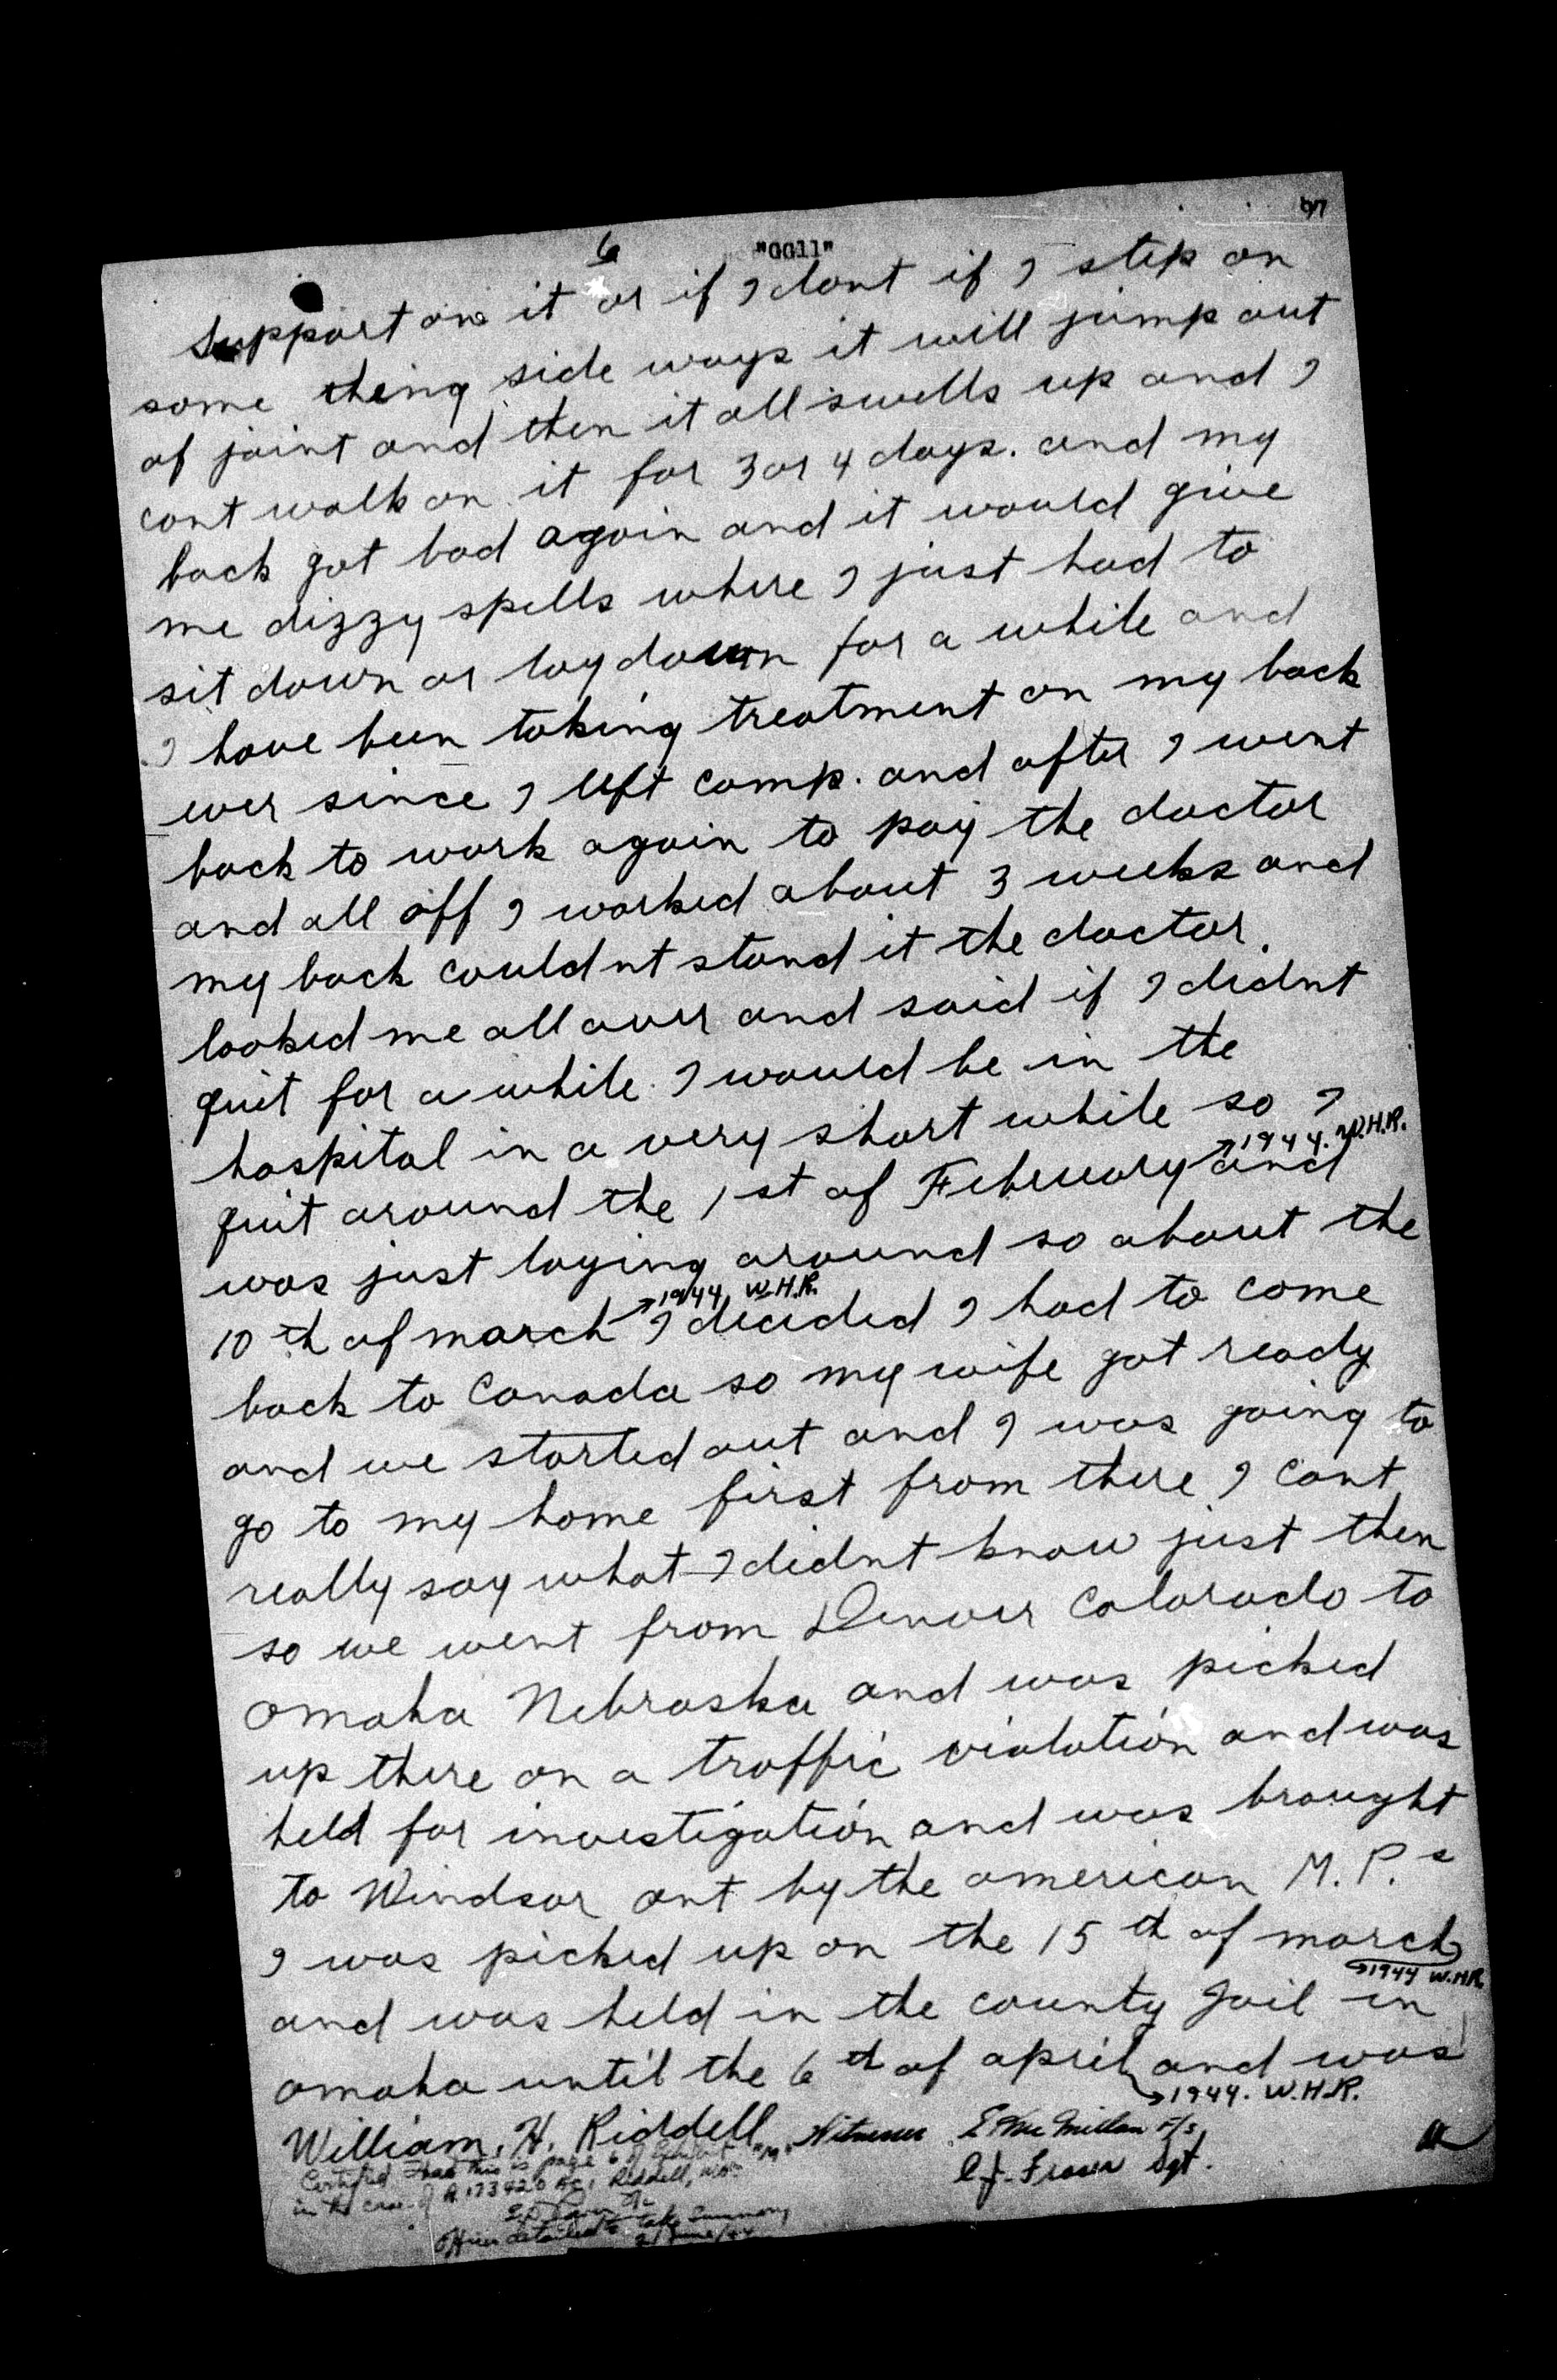 6 "GG11"
Support on it or if I dont if I step on
some thing side ways it will jump out
of joint and then it all swells up and I
cant walk on it for 3 or 4 days. and my
back got bad again and it would give
me dizzy spells where I just had to
sit down or lay down for a while and
I have been taking treatment on my back
ever since I left camp. and after I went
back to work again to pay the doctor
and all off I worked about 3 weeks and
my back couldnt stand it the doctor.
looked me all over and said if I didnt
quit for a while I would be in the
hospital in a very short while so I
→1944. W.H.R.
quit around the 1st of February and
was just laying around so about the
→1944 W.H.R.
10th of march I decided I had to come
back to Canada so my wife got ready
and we started out and I was going to
go to my home first from there I cant
really say what I didnt know just then
so we went from Denver Colorado to
omaha Nebraska and was picked
up there on a traffic violation and was
held for investigation and was brought
to Windsor ont by the american M.P.s
I was picked up on the 15th of march
→1944 W.H.R.
and was held in the county Jail in
omaha until the 6th of april and was
→1944. W.H.R.
William. H. Riddell Witnesses E McMillan F/S
C.J. Fraser Sgt.
Certified that this is page 6 of Exhibit "M"
in the case of A.173420 Riddell, Wm
Officer detailed to take Summary
21 June/44